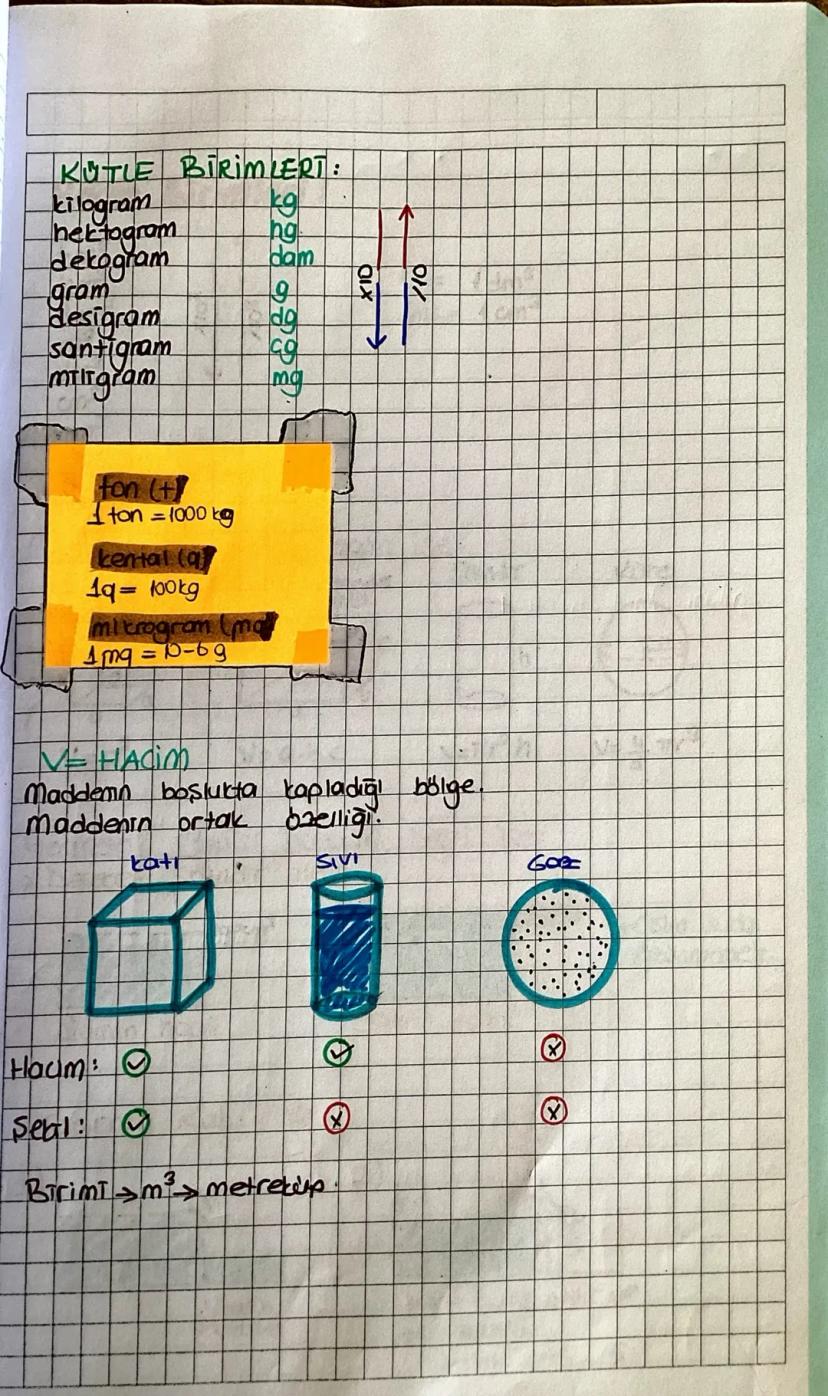 KÜTLE BİRİMLERİ:
kilogram kg
hektogram hg
dekagram dam
gram g
desigram dg
santigram cg
miligram mg
x10 /10
ton (t)
1 ton = 1000 kg
kental (q)
1q = 100kg
mikrogram (mg)
1mg = 10-6 g
V= HACİM
Maddenin boşlukta kapladığı bölge.
Maddenin ortak özelliği.
katı sıvı Gaz
Hacim:
Şekil:
Birimi → m³ → metreküp.